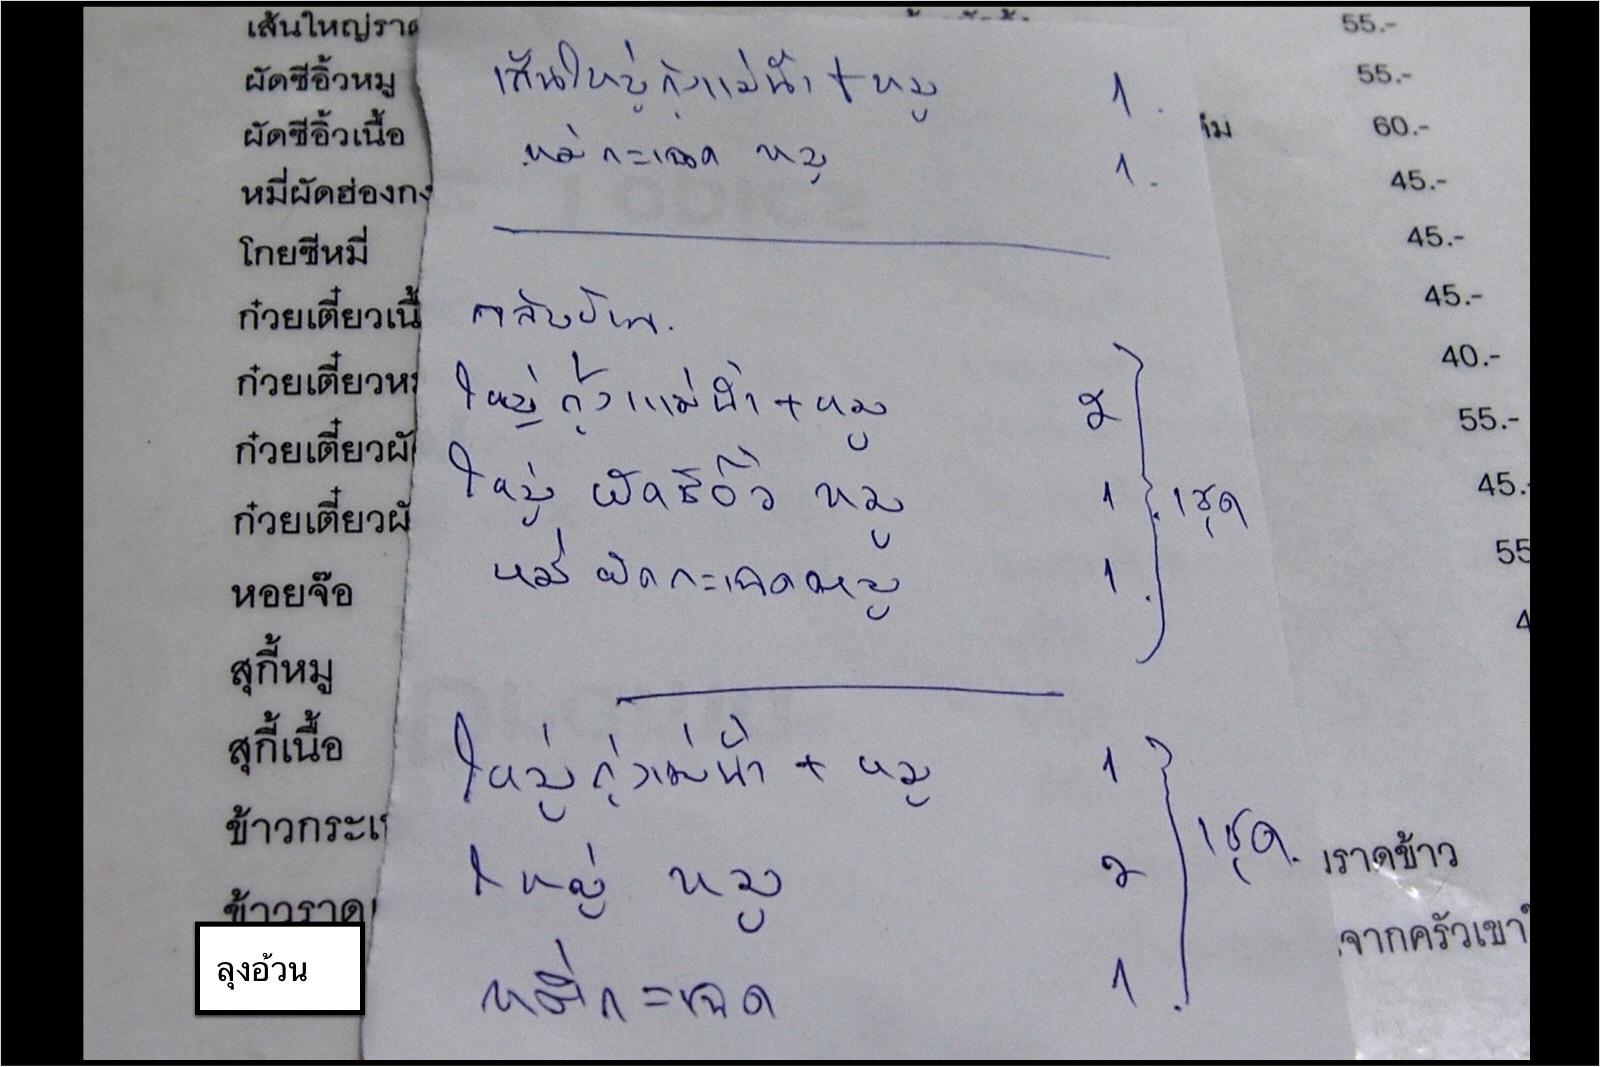 เส้นใหญ่ราด
55.-
ผัดซีอิ้วหมู
55.-
ผัดซีอิ้วเนื้อ
60.-
หมี่ผัดฮ่องกง
45.-
โกยซีหมี่
45.-
ก๋วยเตี๋ยวเนื้
45.-
ก๋วยเตี๋ยวห
40.-
ก๋วยเตี๋ยวผั
55.-
ก๋วยเตี๋ยวผั
45.-
หอยจ๊อ
55
สุกี้หมู
4
สุกี้เนื้อ
ข้าวกระเ
ข้าวราด
ราดข้าว
จากครัวเขาใ
เส้นใหญ่กุ้งแม่น้ำ + หมู 1.
หมี่กะเฉด หมู 1.
กลับบ้าน.
ใหญ่ กุ้งแม่น้ำ + หมู 2
ใหญ่ ผัดซีอิ๊ว หมู 1
หมี่ ผัดกะเฉดหมู 1.
1ชุด
ใหญ่กุ้งแม่น้ำ + หมู 1
ใหญ่ หมู 2
หมี่กะเฉด 1.
1ชุด.
ลุงอ้วน